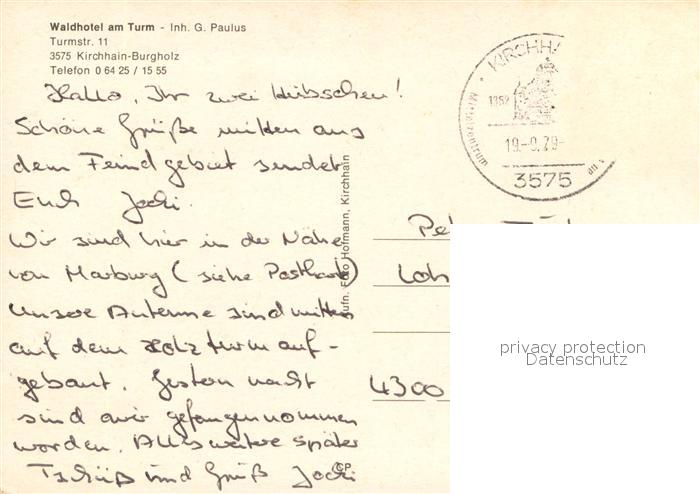 Waldhotel am Turm - Inh. G. Paulus
Turmstr. 11
3575 Kirchhain-Burgholz
Telefon 0 64 25 / 15 55
Hallo, Ihr zwei Hübschen!
Schöne Grüße mitten aus
dem Feindgebiet sendet
Euch Jochi.
Wir sind hier in der Nähe
von Marburg (siehe Postkarte)
Unsere Antenne sind mitten
auf dem Holzturm auf-
gebaut. Gestern nacht
sind wir gefangennommen
worden. Alles weitere später
Tschüß und Gruß Jochi
Aufn. Foto Hofmann, Kirchhain
CP
KIRCHHA
1352
Mittelzentrum
19.-9.79-
3575
Pet
Loh
4300
privacy protection
Datenschutz